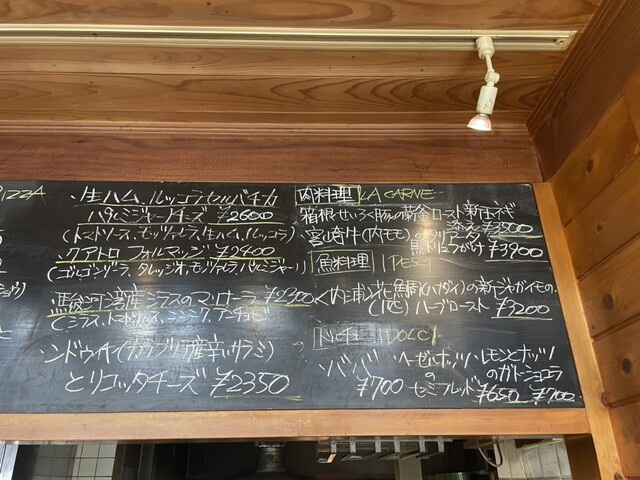 PIZZA
・生ハム、ルッコラセルバチカ
パルミジャーノチーズ ¥2600
(トマトソース、モッツァレラ、生ハム、ルッコラ)
・クアトロ フォルマッジ ¥2400
(ゴルゴンゾーラ、タレッジオ、モッツァレラ、パルミジャーノ)
・駿河湾産シラスのマリナーラ ¥2300
(シラス、トマトソース、ニンニク、アンチョビ)
・ンドゥイヤ(カラブリア産辛いサラミ)
とリコッタチーズ ¥2350
肉料理 LA CARNE
箱根せいろく豚の薪釜ロースト 新玉ネギ
添え ¥3500
・宮崎牛(内モモ)の
¥3900
魚料理 IPESCI
(1匹) ハーブロースト ¥3200
ドルチェ IDOLCI
・ババ
¥700
ヘーゼルナッツ
の
セミフレッド ¥650
レモンとナッツ
のガトーショコラ
¥700